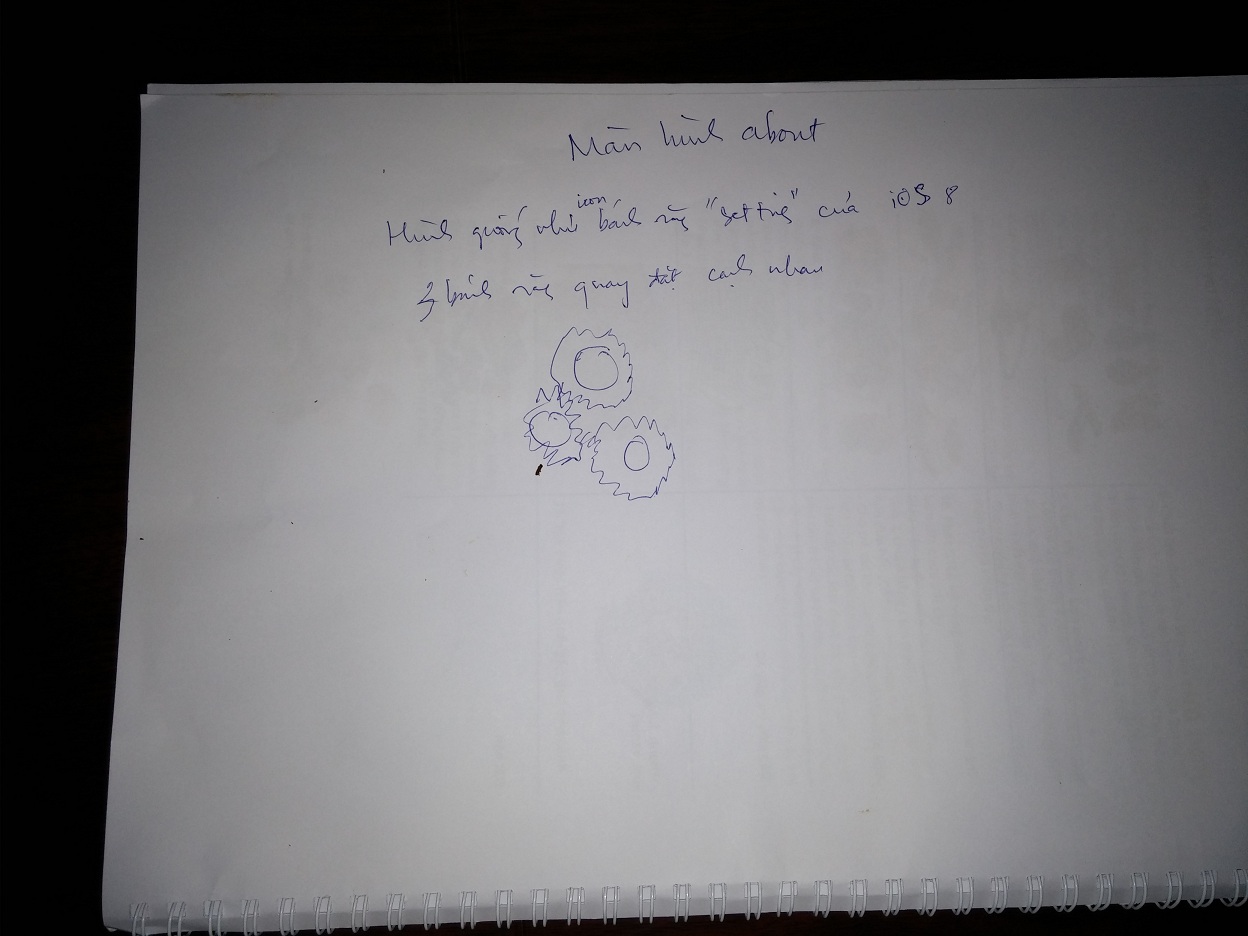 Màn hình about
Hình giống như icon bánh răng "setting" của iOS 8
3 bánh răng quay đặt cạnh nhau